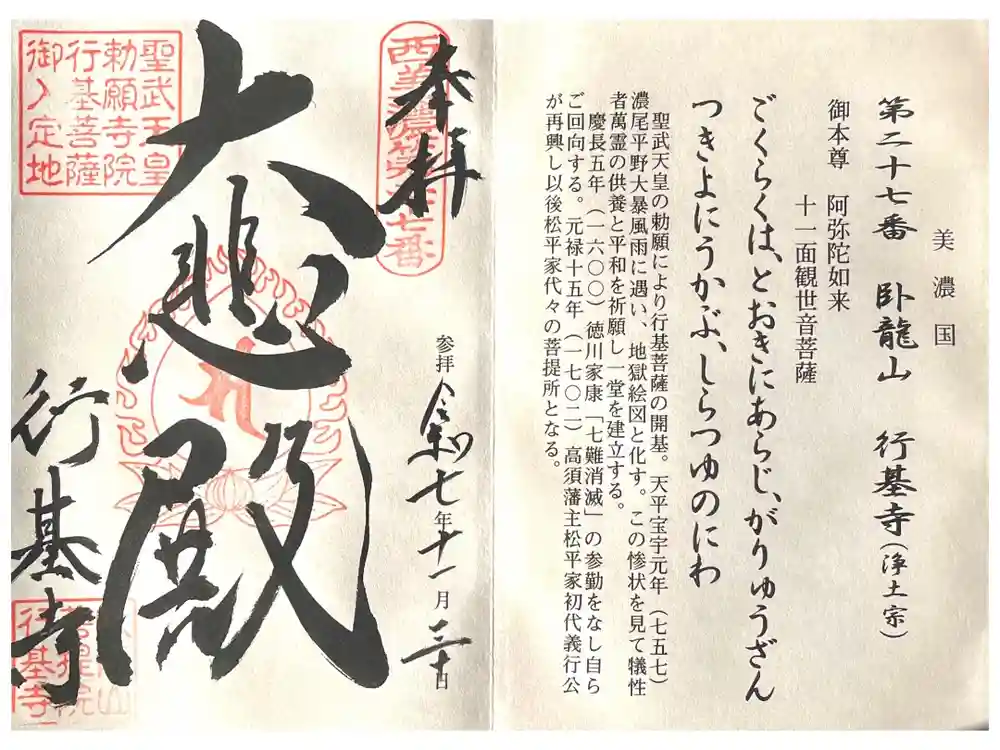 美濃国
第二十七番 臥龍山 行基寺(浄土宗)
御本尊 阿弥陀如来
十一面観世音菩薩
ごくらくは、とおきにあらじ、がりゅうざん
つきよにうかぶ、しらつゆのにわ
聖武天皇の勅願により行基菩薩の開基。天平宝宇元年(七五七)
濃尾平野大暴風雨に遇い、地獄絵図と化す。この惨状を見て犠牲
者萬霊の供養と平和を祈願し一堂を建立する。
慶長五年(一六〇〇)徳川家康「七難消滅」の参勤をなし自ら
ご回向する。元禄十五年(一七〇二)高須藩主松平家初代義行公
が再興し以後松平家代々の菩提所となる。
奉拝
西美濃第二十七番
参拝 令和七年十一月三十日
大悲殿
聖武天皇
勅願寺院
行基菩薩
御入定地
行基寺
菩提院
行基寺